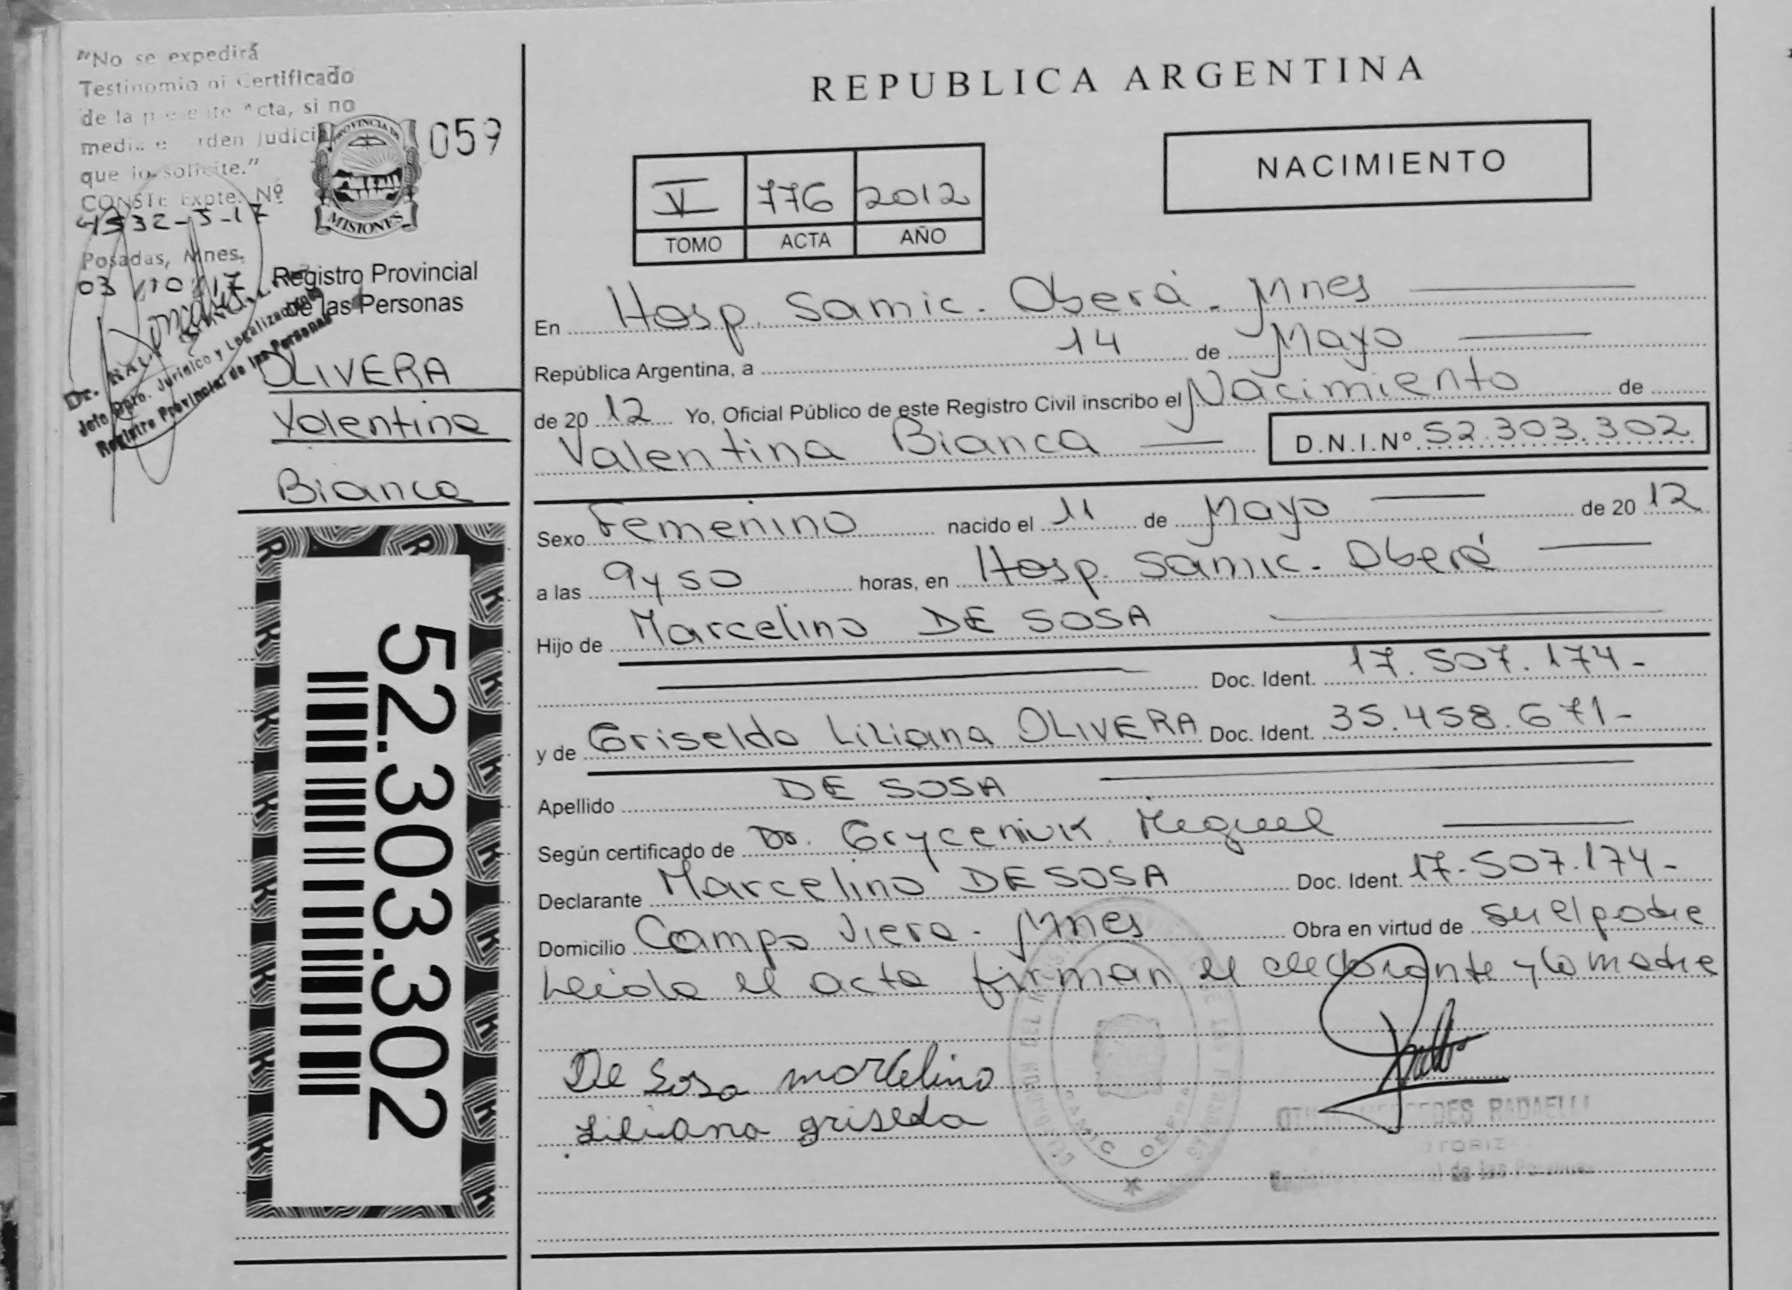 "No se expedirá
Testimonio ni Certificado
de la presente Acta, si no
media orden judicial
que lo solicite."
CONSTE Expte. Nº
4532-5-17
Posadas, Mnes.
03/10/17
Dr.
Jefe Dpto. Jurídico y Legalizaciones
Registro Provincial de las Personas
PROVINCIA DE
MISIONES
059
Registro Provincial
de las Personas
OLIVERA
Valentina
Bianca
52.303.302
REPUBLICA ARGENTINA
V 776 2012
TOMO ACTA AÑO
NACIMIENTO
En Hosp. Samic. Oberá. Mnes
República Argentina, a 14 de Mayo
de 2012 Yo, Oficial Público de este Registro Civil inscribo el Nacimiento de
Valentina Bianca D.N.I.Nº 52.303.302
Sexo Femenino nacido el 11 de Mayo de 2012
a las 9 y 50 horas, en Hosp. Samic. Oberá
Hijo de Marcelino DE SOSA
Doc. Ident. 17.507.174-
y de Griselda Liliana OLIVERA Doc. Ident. 35.458.671-
Apellido DE SOSA
Según certificado de Dr. Gryceniuk Miguel
Declarante Marcelino DE SOSA Doc. Ident. 17.507.174-
Domicilio Campo Viera. Mnes Obra en virtud de ser el padre
Leida el acta firman el declarante y la madre
De Sosa marcelino
Liliana griselda
SAMIC OBERA
MERCEDES RADAELLI
de las Personas